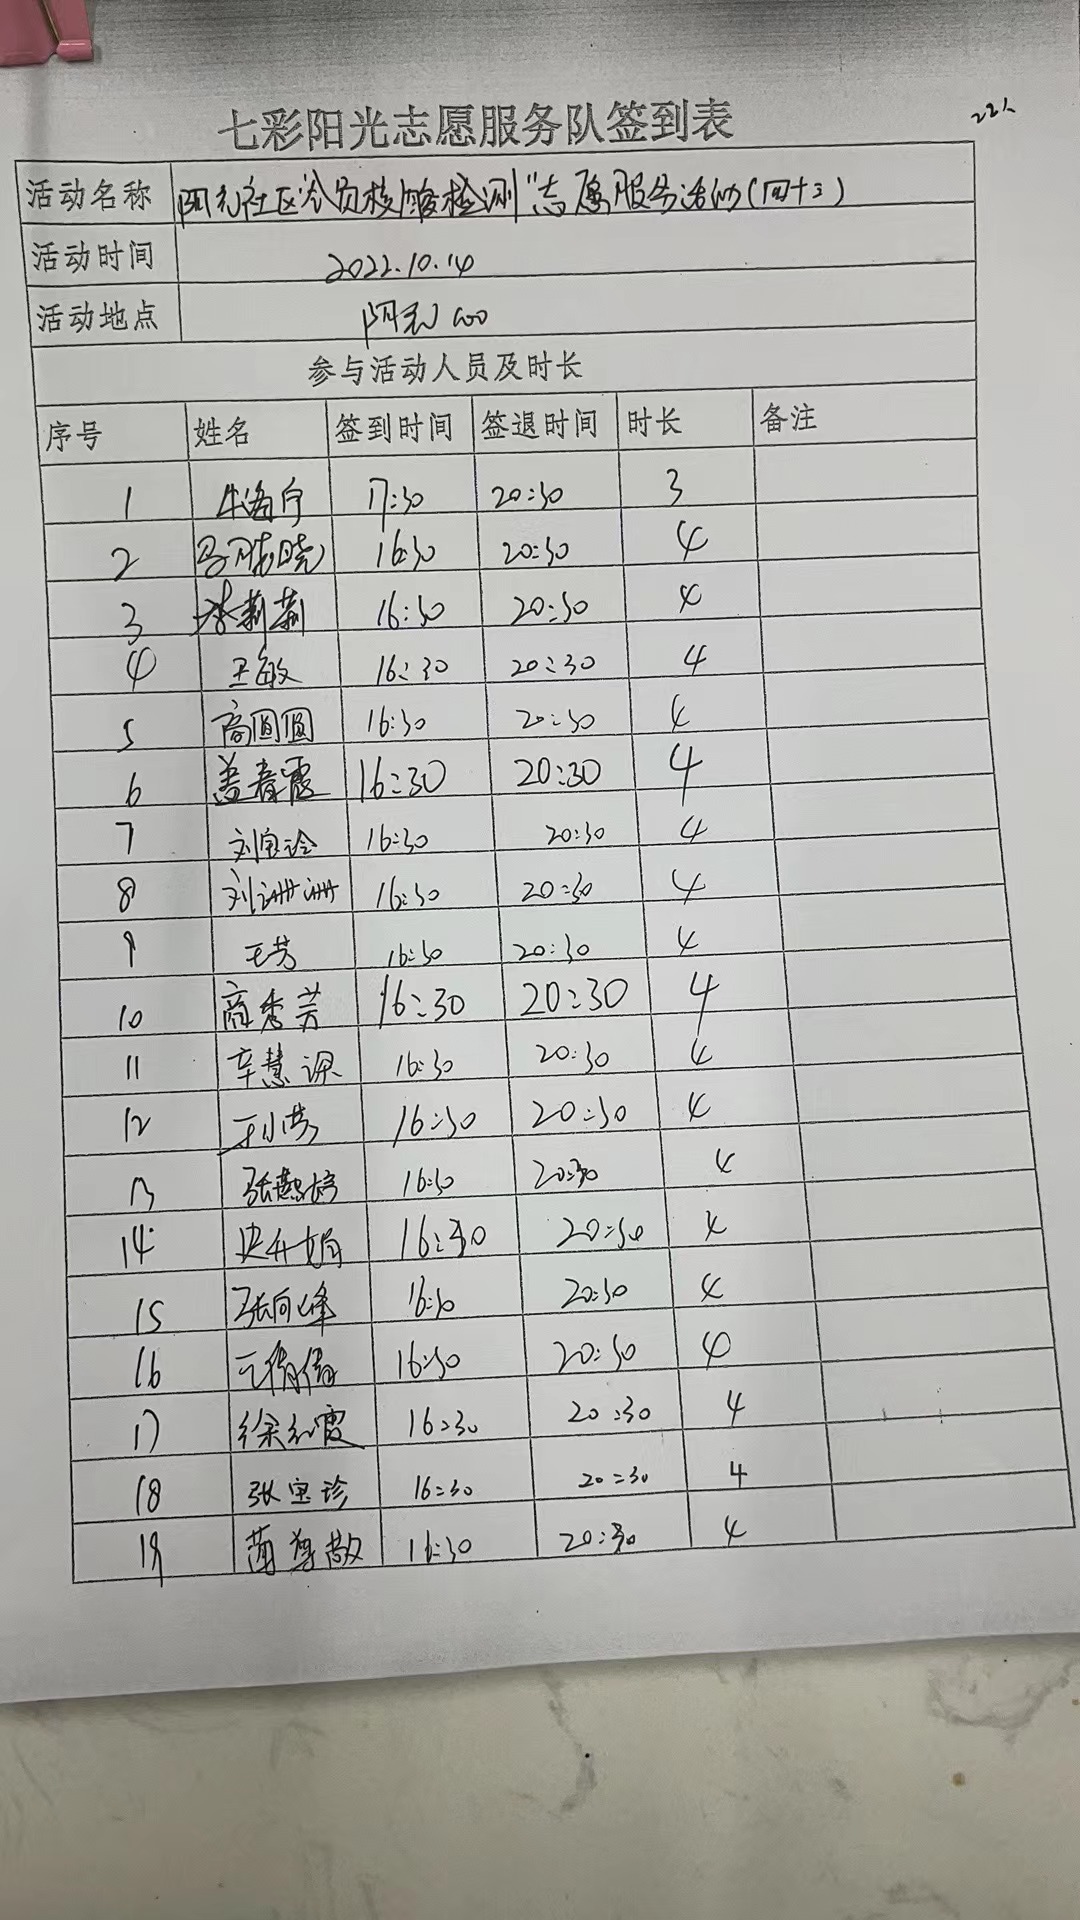 七彩阳光志愿服务队签到表
22人
活动名称 社区全员核酸检测"志愿服务活动(四十三)
活动时间 2022.10.14
活动地点
参与活动人员及时长
序号 姓名 签到时间 签退时间 时长 备注
1 17:30 20:30 3
2 16:30 20:30 4
3 16:30 20:30 4
4 王敏 16:30 20:30 4
5 商圆圆 16:30 20:30 4
6 盖春霞 16:30 20:30 4
7 刘宝玲 16:30 20:30 4
8 刘洲洲 16:30 20:30 4
9 王芳 16:30 20:30 4
10 商秀芳 16:30 20:30 4
11 16:30 20:30 4
12 16:30 20:30 4
13 16:30 20:30 4
14 16:30 20:30 4
15 张向峰 16:30 20:30 4
16 王倩倩 16:30 20:30 4
17 徐红霞 16:30 20:30 4
18 张宝珍 16:30 20:30 4
19 16:30 20:30 4